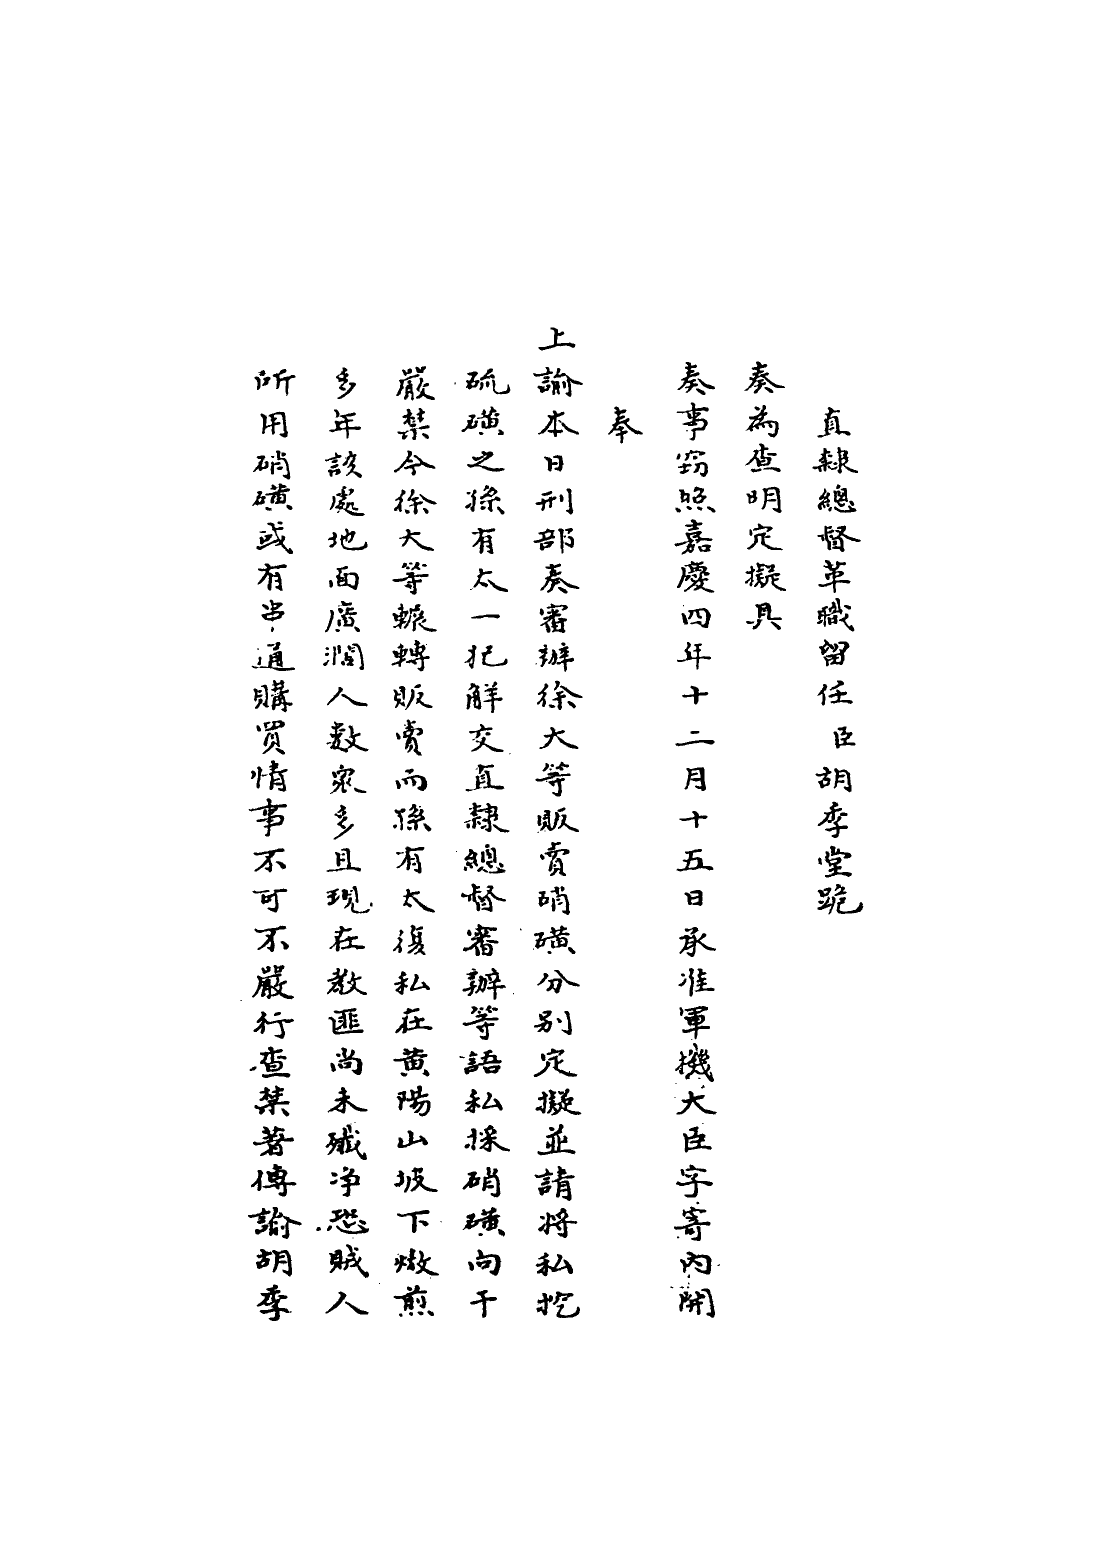 直隸總督革職留任臣胡季堂跪
奏為查明定擬具
奏事窃照嘉慶四年十二月十五日承准軍機大臣字寄內開
奉
上諭本日刑部奏審辦徐大等販賣硝磺分別定擬並請將私挖
硫磺之孫有太一犯解交直隸總督審辦等語私採硝磺向干
嚴禁今徐大等輾轉販賣而孫有太復私在黄陽山坡下熬煎
多年該處地面廣濶人數衆多且現在教匪尚未殱净恐賊人
所用硝磺或有串通購買情事不可不嚴行查禁著傳諭胡季